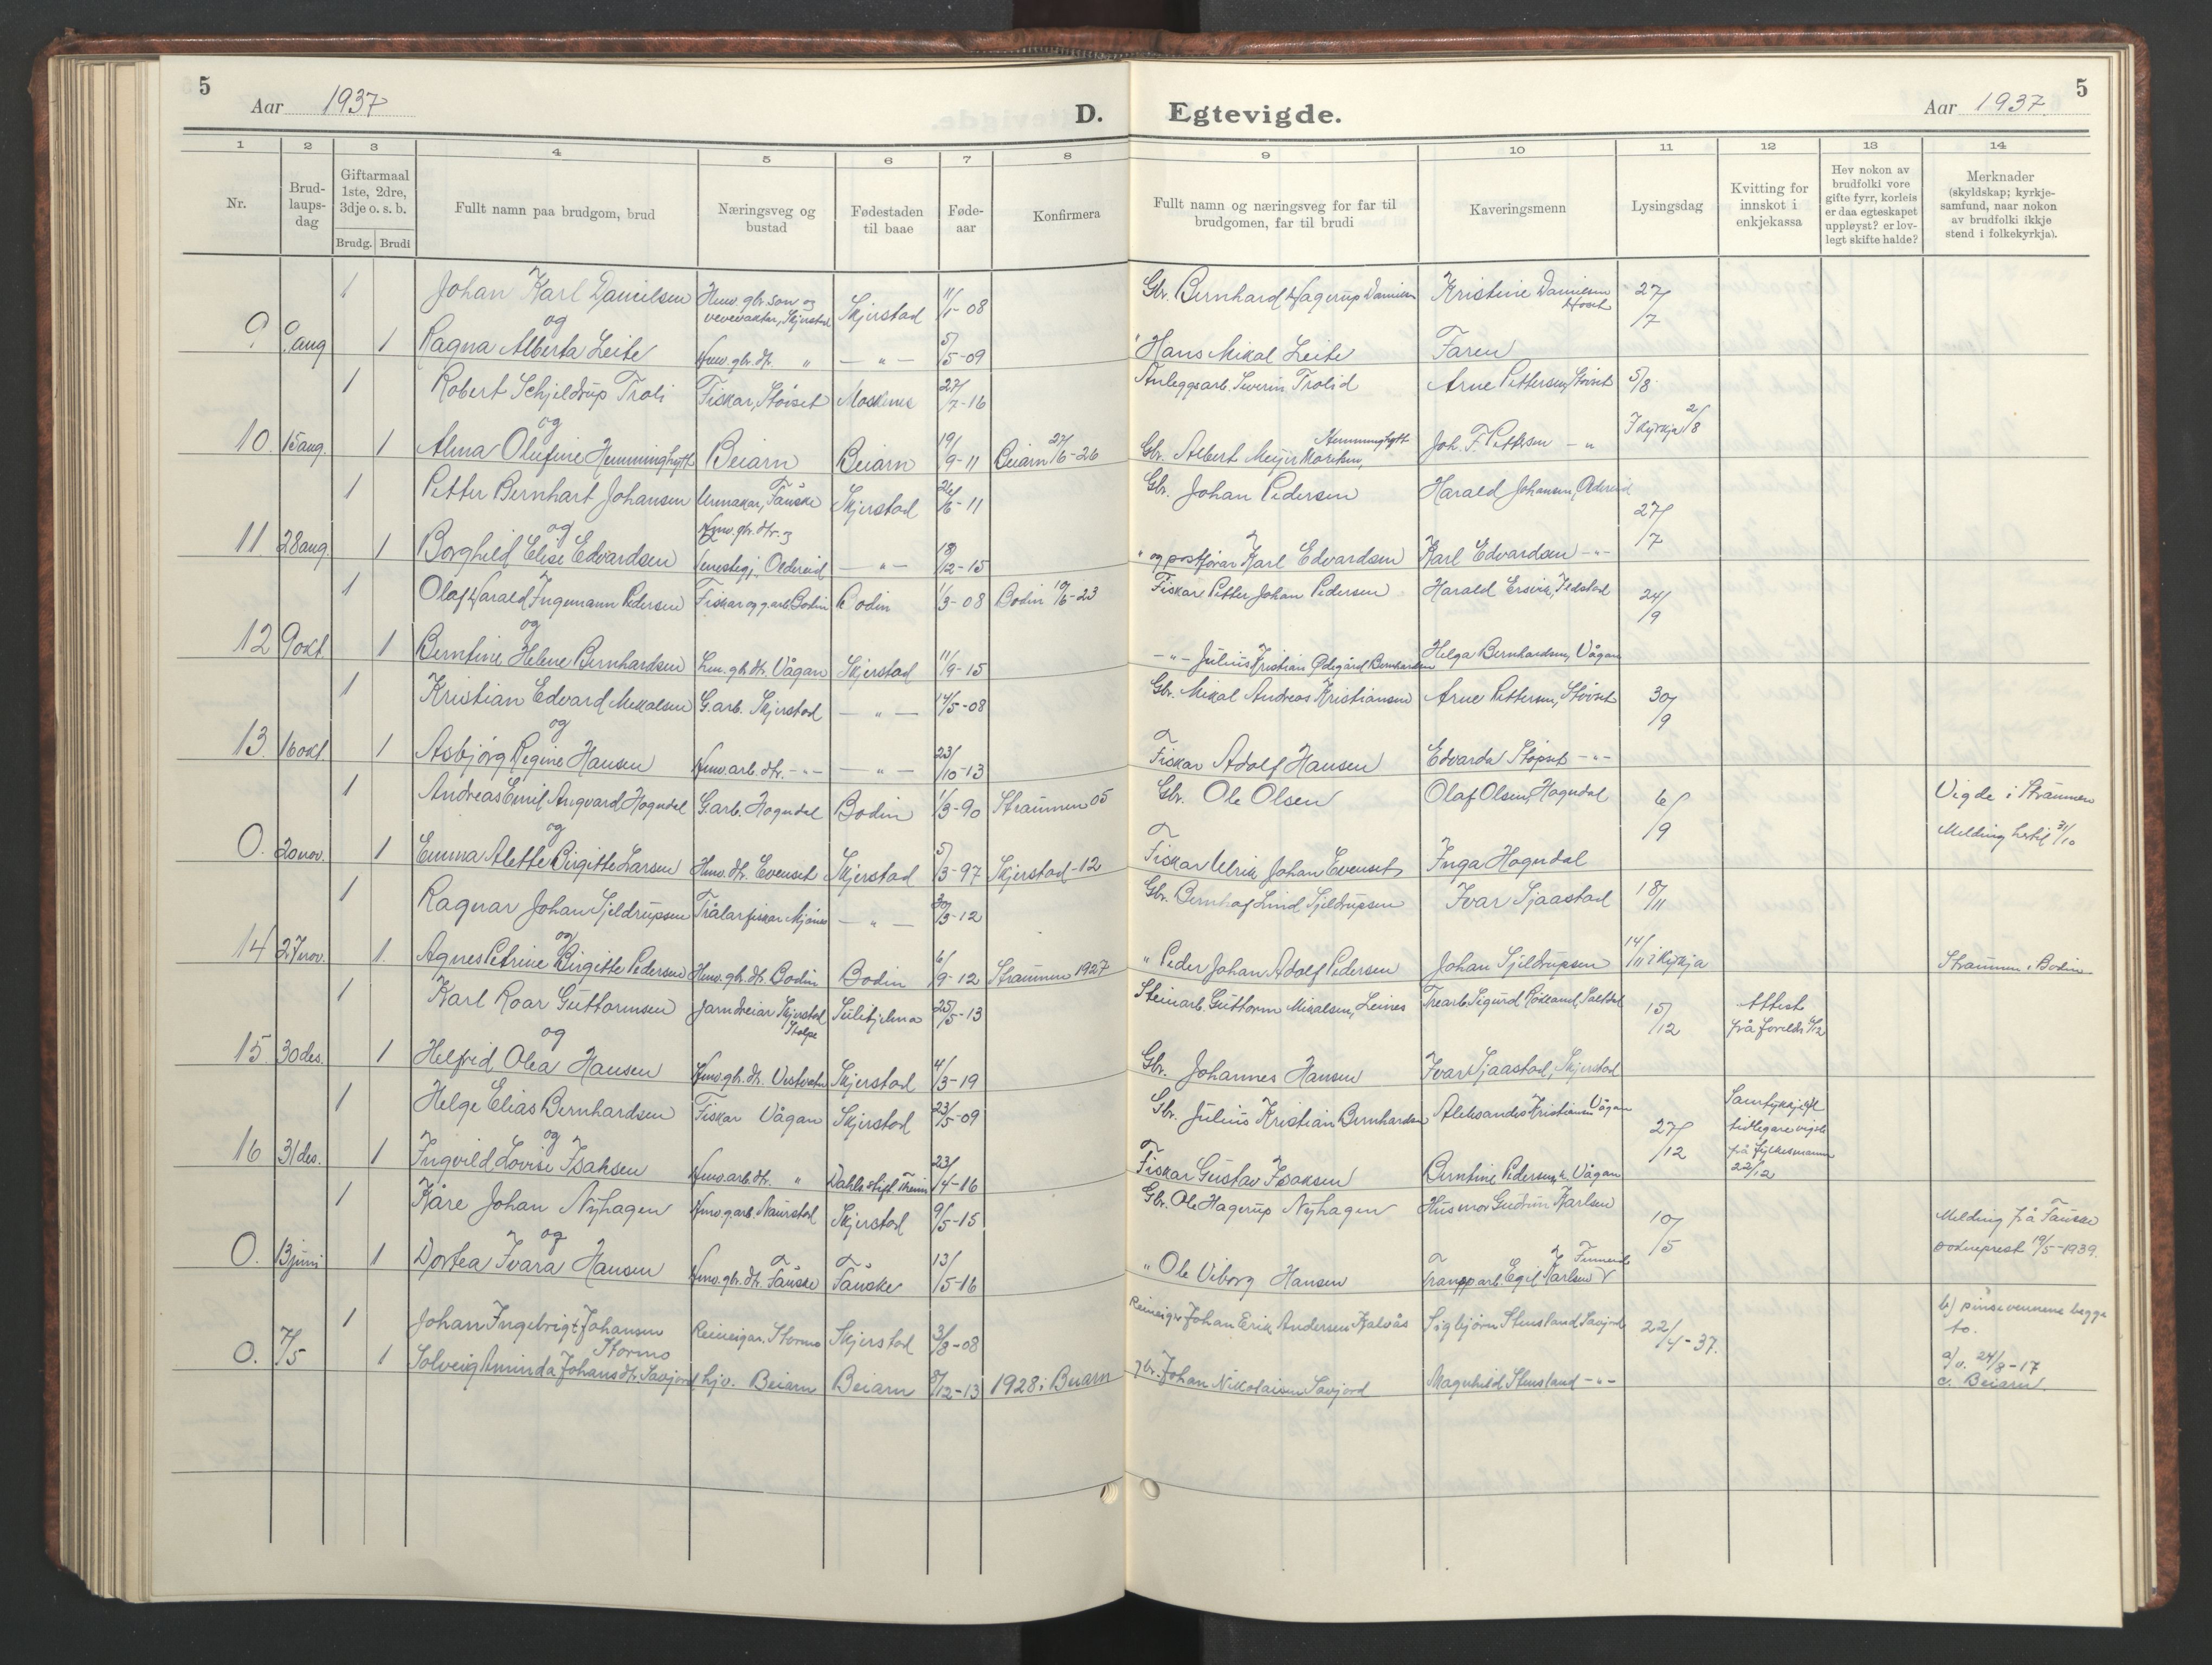 5
Aar 1937
D.
Egtevigde.
Aar 1937.
5
1 2 3 4 5 6 7 8 9 10 11 12 13 14
Nr.
Brud-
laups-
dag
Giftarmaal
1ste, 2dre,
3dje o. s. b.
Brudg. Brudi
Fullt namn paa brudgom, brud
Næringsveg og
bustad
Fødestaden
til baae
Føde-
aar
Konfirmera
Fullt namn og næringsveg for far til
brudgomen, far til brudi
Kaveringsmenn
Lysingsdag
Kvitting for
innskot i
enkjekassa
Hev nokon av
brudfolki vore
gifte fyrr, korleis
er daa egteskapet
uppløyst? er lov-
legt skifte halde?
Merknader
(skyldskap; kyrkje-
samfund, naar nokon
av brudfolki ikkje
stend i folkekyrkja).
1 Johan Karl Danielsen Hmv. gbr. son og Skjerstad 11/1-08 Gbr. Bernhard Hagerup Danielsen Kristine Danielsen 27/7
og
9 9 aug 1 Ragna Alberta Leite Hmv. gbr. dtr. " — " — 5/5-09 " Hans Mikal Leite Faren
1 Robert Schjeldrup Troli Fiskar, Støvset Moskenes 27/7-16 Anleggsarb. Severin Trolid Arne Pettersen, Støvset 5/8
og
I kyrkja 2/8
10. 15 aug. 1 Alma Olufine Hemminghytt Beiarn Beiarn 19/9-11 Beiarn 27/6-26 Gbr. Albert Meyer Hemminghytt Joh. F. Pettersen — "
1 Petter Bernhart Johansen Urmakar, Fauske Skjerstad 26/6-11 Gbr. Johan Pedersen Harald Johansen, Oldereid 27/7
og Hmv. gbr. dtr. og
11 28 aug. 1 Borghild Elise Edvardsen Oldereid — " — 18/12-15 " og postførar Karl Edvardsen Karl Edvardsen — " —
1 Olaf Harald Ingemann Pedersen Fiskar og g.arb. Bodin Bodin 1/3-08 Bodin 10/6-23 Fiskar Petter Johan Pedersen Harald Ersvik, Ildstad 24/9
og
12 9 okt. 1 Berntine Helene Bernhardsen hmv. gbr. dtr. Vågan Skjerstad 11/9-15 — " — Julius Kristian Ødegård Bernhardsen Helga Bernhardsen, Vågan
1 Kristian Edvard Mikalsen G.arb. Skjerstad — " — 14/5-08 Gbr. Mikal Andreas Kristiansen Arne Pettersen, Støvset 30/9
og
13. 16 okt. 1 Asbjørg Regine Hansen Hmv. arb. dtr. — " — — " — 23/10-13 Fiskar Adolf Hansen Edvarda Støvset — " —
1 Andreas Emil Angvard Hogndal G.arb. Hogndal Bodin 1/3-90 Straumen 05 Gbr. Ole Olsen Olaf Olsen, Hogndal 6/9 Vigde i Straumen
og
Melding hertil 31/10
0. 20 nov. 1 Emma Alette Birgitte Larsen Hmv. dtr. Evenset Skjerstad 5/3-97 Skjerstad-12 Fiskar Ulrik Johan Evensets Inga Hogndal
1 Ragnar Johan Sjeldrupsen Trålarfiskar Mjønes — " — 30/3-12 Gbr. Bernhof Lind Sjeldrupsen Ivar Sjaastad 18/11
og
14 27 nov. 1. Agnes Petrine Birgitte Pedersen Hmv. gbr. dtr. Bodin Bodin 6/9-12 Straumen 1927 " Peder Johan Adolf Pedersen Johan Sjeldrupsen 14/11 i kyrkja Straumen i Bodin
1 Karl Roar Guttormsen Jarndreiar Skjerstad Sulitjelma 25/5-13 Steinarb. Guttorm Mikalsen, Leines Trearb. Sigurd Rokland, Saltdal 15/12 Attest
og
frå foreldr. 6/12
15. 30 des. 1 Helfrid Olea Hansen Hmv. gbr. dtr. Vestvatn Skjerstad 4/3-19 Gbr. Johannes Hansen Ivar Sjaastad, Skjerstad
1 Helge Elias Bernhardsen Fiskar Vågan Skjerstad 23/5-09 Gbr. Julius Kristian Bernhardsen Aleksander Kristiansen Vågan 27/12 Samtykkje til
og
tidlegare vigsle
frå fylkesmann
22/12
16 31 des. 1 Ingvild Lovise Isaksen Hmv. arb. dtr. " 23/4-16 Fiskar Gustav Isaksen Berntine Pedersen, Vågan
1 Kåre Johan Nyhagen Hmv. g.arb. Naurstad Skjerstad 9/5-15 Gbr. Ole Hagerup Nyhagen Husmor Gudrun Karlsen 10/5 Melding frå Fauske
og
sokneprest 19/5-1939.
0. 13 juni 1 Dortea Ivara Hansen Hmv. gbr. dtr. Fauske Fauske 13/5-16 " Ole Viborg Hansen Transp.arb. Egil Karlsen
1 Johan Ingebrigt Johansen Reineigar. Stormo Skjerstad 3/8-08 Reineigar Johan Erik Andersen Sigbjørn Stensland Savjord 22/4-37. b) pinsevennene begge
Stormo
to.
0. 7/5 1 Solveig Aminda Johansdtr. Savjord hjv. Beiarn Beiarn 8/12-13 1928 i Beiarn gbr. Johan Nikolaisen Savjord Magnhild Stensland — " — a) v. 24/8-17
c. Beiarn.